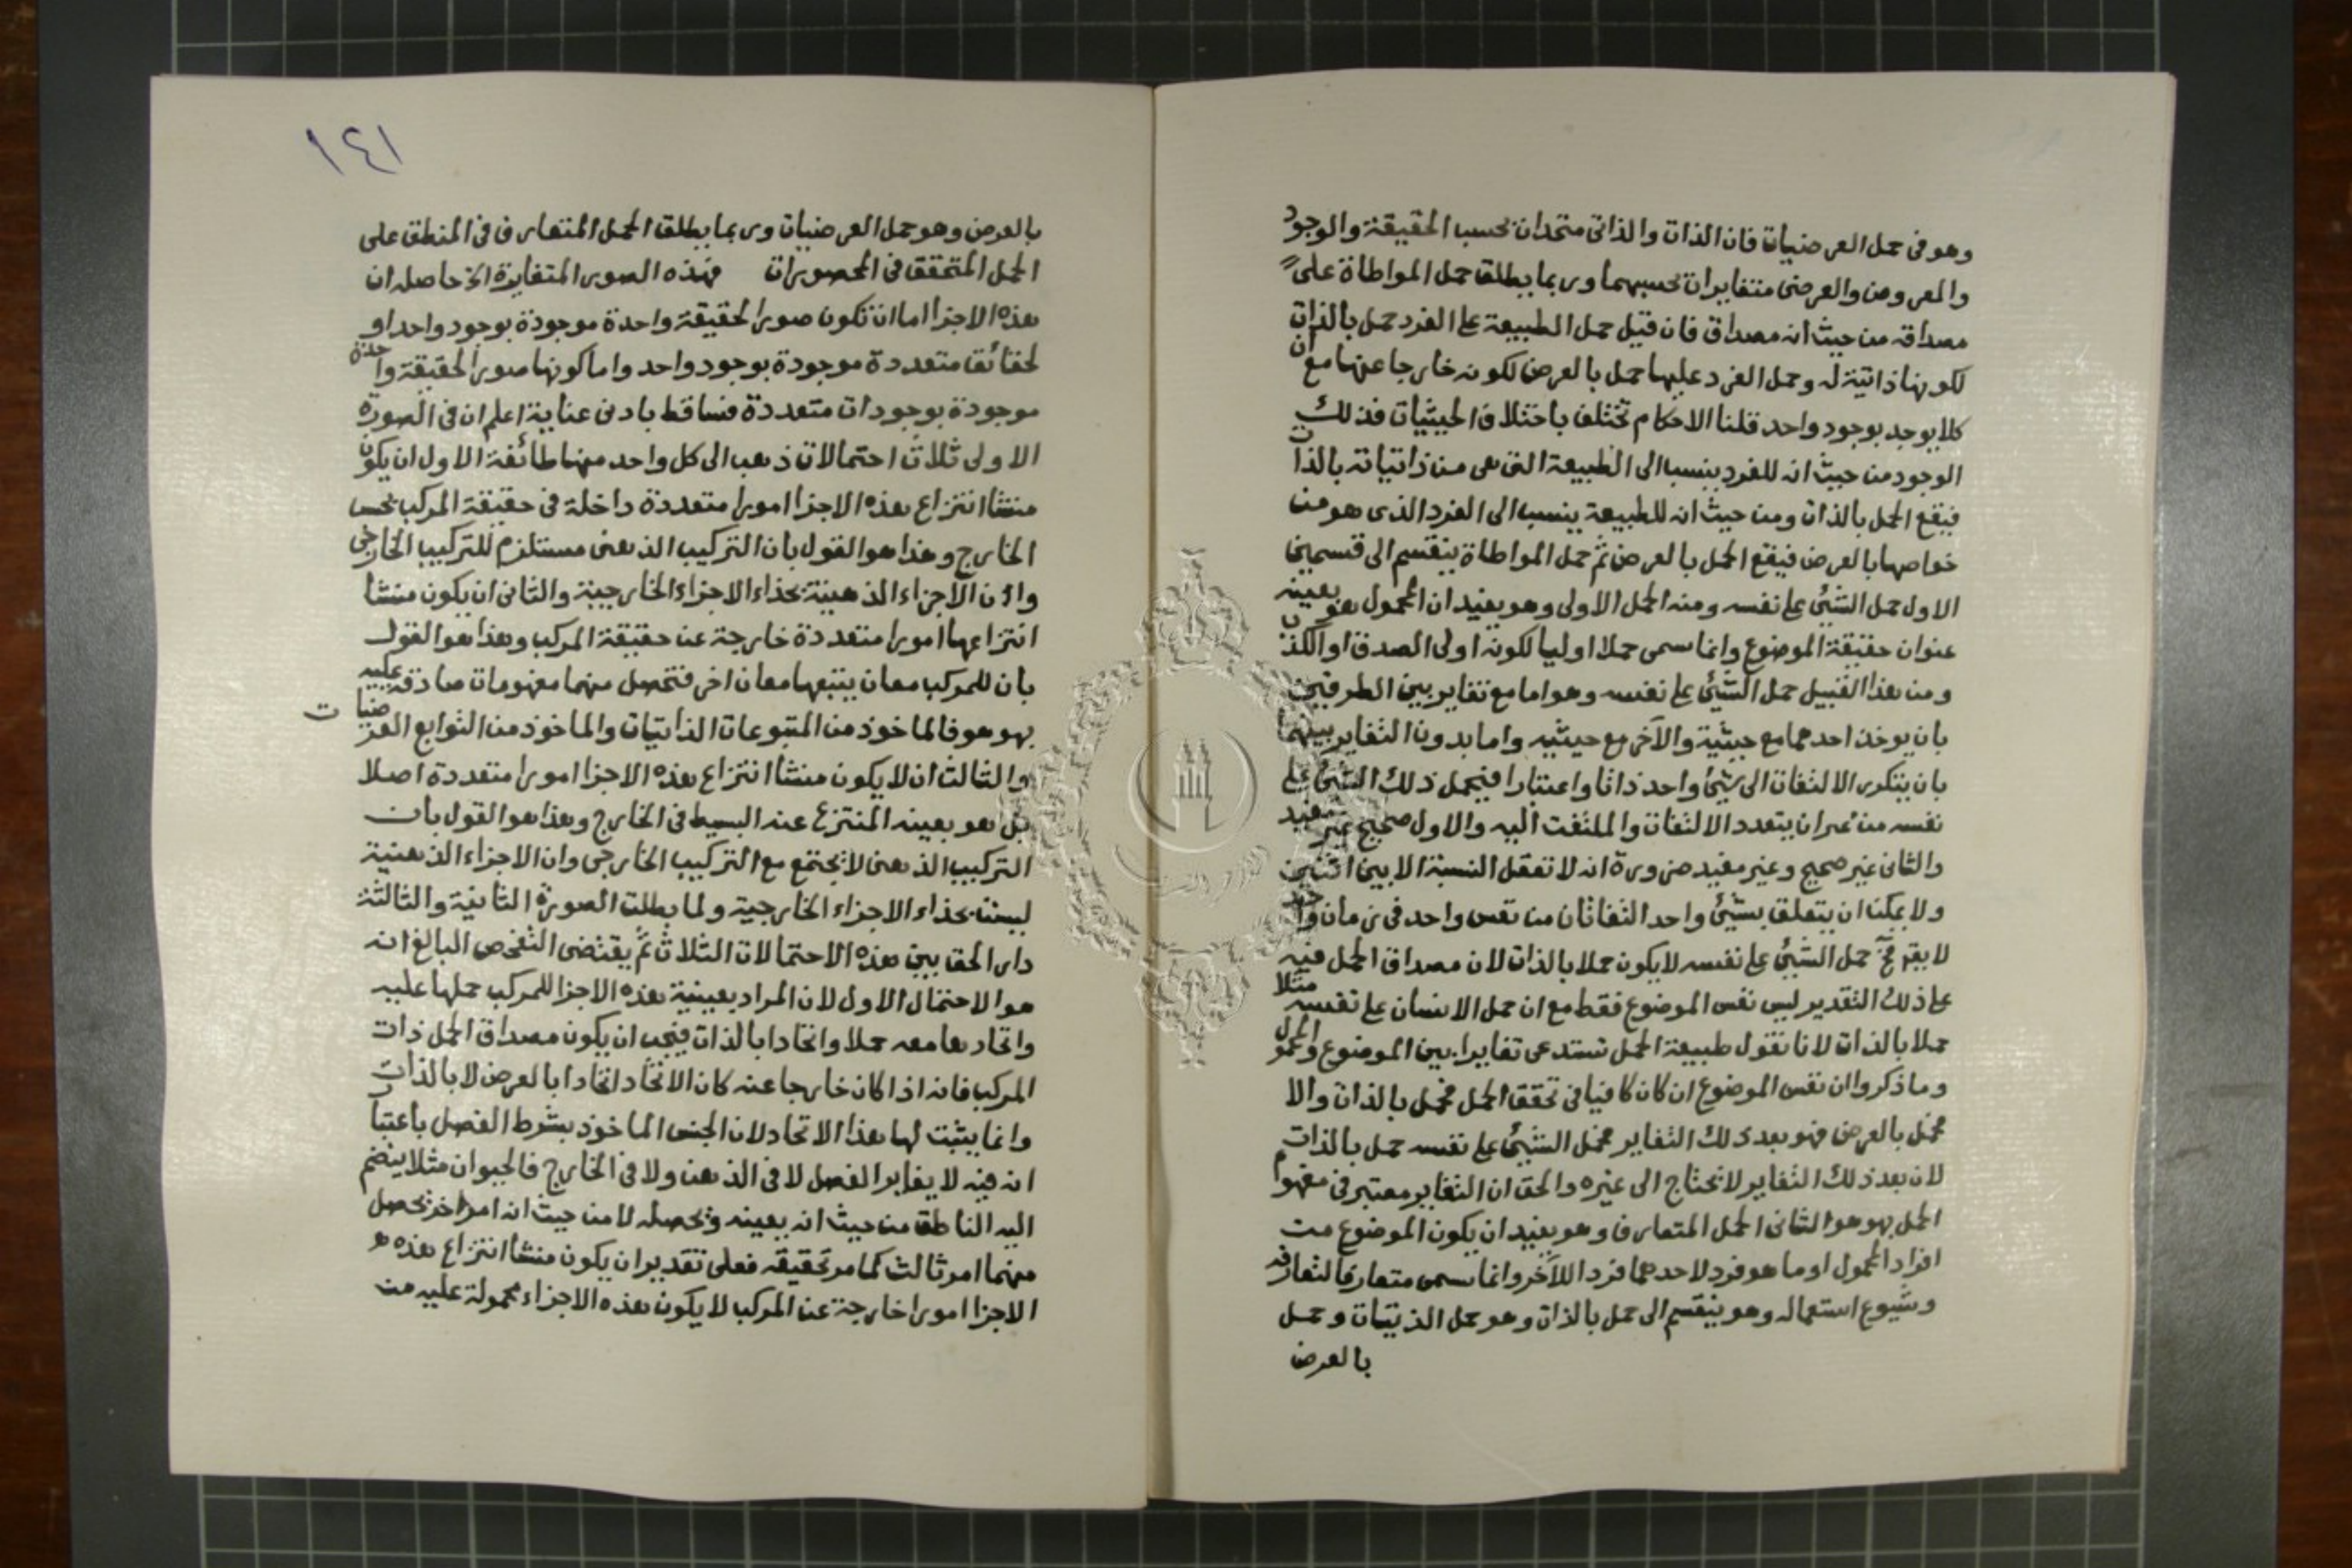 وهو فى حمل العرضيات فان الذات والذاتى متحدان بحسب الحقيقة والوجود
والمعروض والعرضى متغايران بحسبهما وربما يطلق حمل المواطاة على
مصداقه من حيث انه مصداق فان قيل حمل الطبيعة على الفرد حمل بالذات
لكونها ذاتية له وحمل الفرد عليها حمل بالعرض لكونه خارجا عنها مع ان
كلا يوجد بوجود واحد قلنا الاحكام تختلف باختلاف الحيثيات فذلك
الوجود من حيث انه للفرد ينسب الى الطبيعة التى هى من ذاتياته بالذات
فيقع الحمل بالذات ومن حيث انه للطبيعة ينسب الى الفرد الذى هو من
خواصها بالعرض فيقع الحمل بالعرض ثم حمل المواطاة ينقسم الى قسمين
الاول حمل الشيئ على نفسه ومنه الحمل الاولى وهو يفيد ان المحمول هو بعينه
عنوان حقيقة الموضوع وانما سمى حملا اوليا لكونه اولى الصدق او الكذب
ومن هذا القبيل حمل الشيئ على نفسه وهو اما مع تغاير بين الطرفين
بان يوخذ احدهما مع حيثية والآخر مع حيثيه واما بدون التغاير بينهما
بان يتكرر الالتفات الى شيئ واحد ذاتا واعتبارا فيحمل ذلك الشيئ على
نفسه من غير ان يتعدد الالتفات والملتفت اليه والاول صحيح غير مفيد
والثانى غير صحيح وغير مفيد ضرورة انه لا تعقل النسبة الا بين اثنين
ولا يمكن ان يتعلق بشيئ واحد التفاتان من نفس واحد فى زمان واحد
لا يقم فح حمل الشيئ على نفسه لا يكون حملا بالذات لان مصداق الحمل فيه
على ذلك التقدير ليس نفس الموضوع فقط مع ان حمل الانسان على نفسه مثلا
حملا بالذات لانا نقول طبيعة الحمل تستدعى تغايرا بين الموضوع والمحمول
وما ذكروا ان نفس الموضوع ان كان كافيا فى تحقق الحمل فحمل بالذات والا
فحمل بالعرض فهو بعد ذلك التغاير فحمل الشيئ على نفسه حمل بالذات
لان بعد ذلك التغاير لا تحتاج الى غيره والحق ان التغاير معتبر فى مفهوم
الحمل بهو هو الثانى الحمل المتعارف وهو يفيد ان يكون الموضوع من
افراد المحمول او ما هو فرد لاحدهما فرد اللآخر وانما سمى متعارفا لتعارفه
وشيوع استعماله وهو ينقسم الى حمل بالذات وهو حمل الذتيات وحمل
بالعرض
١٤١
بالعرض وهو حمل العرضيات وربما يطلق الحمل المتعارف فى المنطق على
الحمل المتحقق فى المحصورات فهذه الصور المتغايرة الخ حاصله ان
هذه الاجزا اما ان تكون صورا لحقيقة واحدة موجودة بوجود واحد او
لحقائق متعددة موجودة بوجود واحد واما كونها صورا لحقيقة واحدة
موجودة بوجودات متعددة فساقط بادنى عناية اعلم ان فى الصورة
الاولى ثلاث احتمالات ذهب الى كل واحد منها طائفة الاول ان يكون
منشا انتزاع هذه الاجزا امورا متعددة داخلة فى حقيقة المركب بحسب
الخارج وهذا هو القول بان التركيب الذهنى مستلزم للتركيب الخارجى
وان الاجزاء الذهنية بحذاء الاجزاء الخارجية والثانى ان يكون منشا
انتزاعها امورا متعددة خارجة عن حقيقة المركب وهذا هو القول
بان للمركب معان يتبعها معان اخر فتحصل منهما مفهومات صادقة عليه
بهو هو فالماخوذ من المتبوعات الذاتيات والماخوذ من التوابع العرضيات
والثالث ان لا يكون منشا انتزاع هذه الاجزا امورا متعددة اصلا
بل هو بعينه المنتزع عنه البسيط فى الخارج وهذا هو القول بان
التركيب الذهنى لا يجتمع مع التركيب الخارجى وان الاجزاء الذهنية
ليست بحذاء الاجزاء الخارجية ولما بطلت الصورة الثانية والثالثة
دار الحق بين هذه الاحتمالات الثلاث ثم يقتضى التفحص البالغ انه
هو الاحتمال الاول لان المراد بعينية هذه الاجزا للمركب حملها عليه
واتحادها معه حملا واتحادا بالذات فيجب ان يكون مصداق الحمل ذات
المركب فانه اذا كان خارجا عنه كان الاتحاد اتحادا بالعرض لا بالذات
وانما يثبت لها هذا الاتحاد لان الجنس الماخوذ بشرط الفصل باعتبار
انه فيه لا يغاير الفصل لا فى الذهن ولا فى الخارج فالحيوان مثلا ينضم
اليه الناطق من حيث انه يعينه ويحصله لا من حيث انه امر اخر يحصل
منهما امر ثالث كما مر تحقيقه فعلى تقدير ان يكون منشا انتزاع هذه
الاجزا امورا خارجة عن المركب لا يكون هذه الاجزاء محمولة عليه من